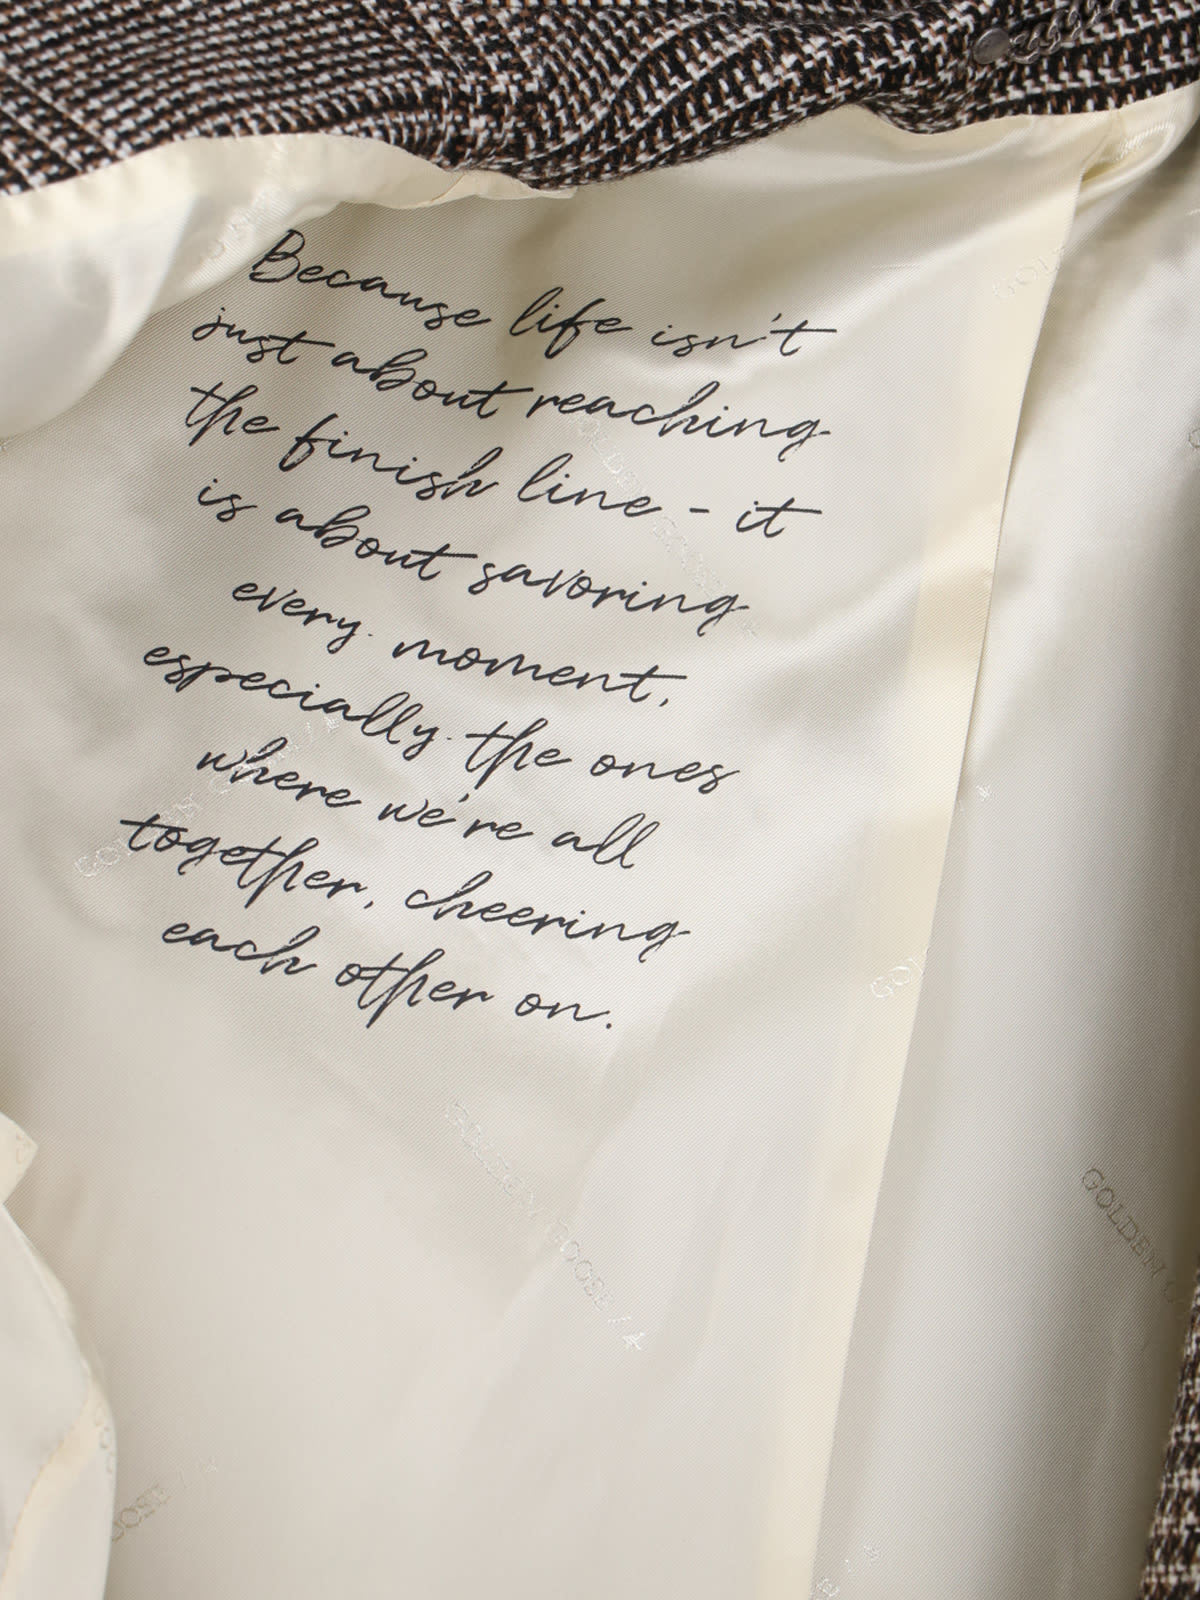 Because life isn't
just about reaching
the finish line - it
is about savoring
every moment,
especially the ones
where we're all
together, cheering
each other on.
GOLDEN GOOSE /
GOLDEN GOOSE /
GOLDEN
GOOSE /